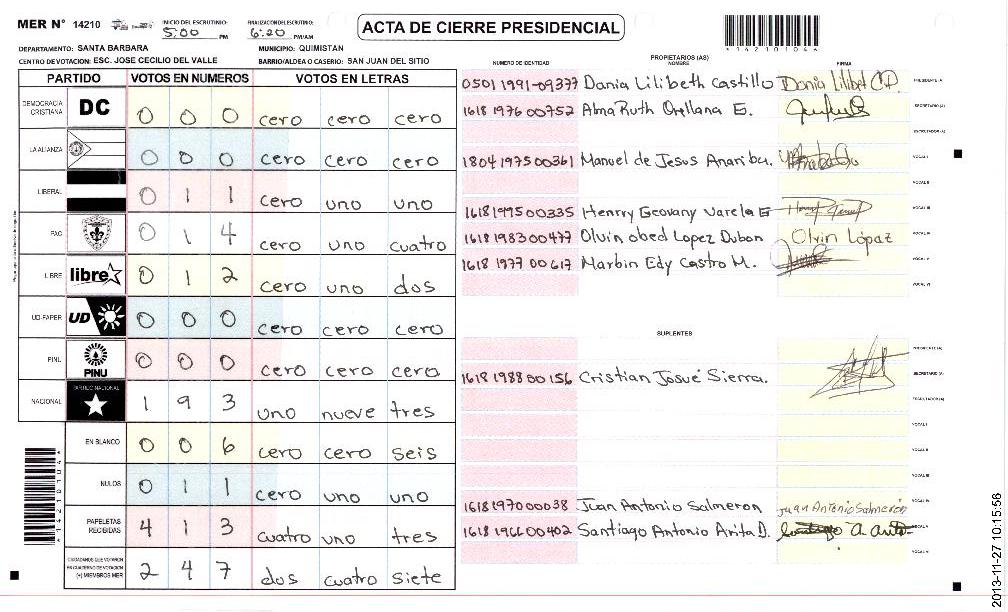 MER N° 14210 INICIO DEL ESCRUTINIO: 5:00 PM FINALIZACION DEL ESCRUTINIO: 6:20 PM/AM
ACTA DE CIERRE PRESIDENCIAL
*14210104*
DEPARTAMENTO: SANTA BARBARA MUNICIPIO: QUIMISTAN
CENTRO DE VOTACION: ESC. JOSE CECILIO DEL VALLE BARRIO/ALDEA O CASERIO: SAN JUAN DEL SITIO
PARTIDO VOTOS EN NUMEROS VOTOS EN LETRAS
DEMOCRACIA CRISTIANA DC 0 0 0 cero cero cero
LA ALIANZA 0 0 0 cero cero cero
LIBERAL 0 1 1 cero uno uno
PAC 0 1 4 cero uno cuatro
LIBRE libre 0 1 2 cero uno dos
UD-FAPER UD 0 0 0 cero cero cero
PINU PINU 0 0 0 cero cero cero
NACIONAL PARTIDO NACIONAL 1 9 3 uno nueve tres
EN BLANCO 0 0 6 cero cero seis
NULOS 0 1 1 cero uno uno
PAPELETAS RECIBIDAS 4 1 3 cuatro uno tres
CIUDADANOS QUE VOTARON EN CUADERNO DE VOTACION (+) MIEMBROS MER 2 4 7 dos cuatro siete
PROPIETARIOS (AS)
NUMERO DE IDENTIDAD NOMBRE FIRMA
0501 1991-09377 Dania Lilibeth Castillo Dania Lilibet C.D. PRESIDENTE (A)
1618 1976 00752 Alma Ruth Orellana E. SECRETARIO (A)
ESCRUTADOR (A)
1804 1975 00361 Manuel de Jesus VOCAL I
VOCAL II
1618 1995 00335 Henrry Geovany Varela E VOCAL III
1618 1983 00477 Olvin obed Lopez Dubon Olvin López VOCAL IV
1618 1977 00617 Marbin Edy Castro M. VOCAL V
VOCAL VI
SUPLENTES
PRESIDENTE (A)
1618 1988 00156 Cristian Josué Sierra. SECRETARIO (A)
ESCRUTADOR (A)
VOCAL I
VOCAL II
VOCAL III
1618 1970 00038 Juan Antonio Salmeron Juan Antonio Salmerón VOCAL IV
1618 1966 00402 Santiago Antonio Arita D. Santiago A. Arita VOCAL V
VOCAL VI
2013-11-27 10:15:56